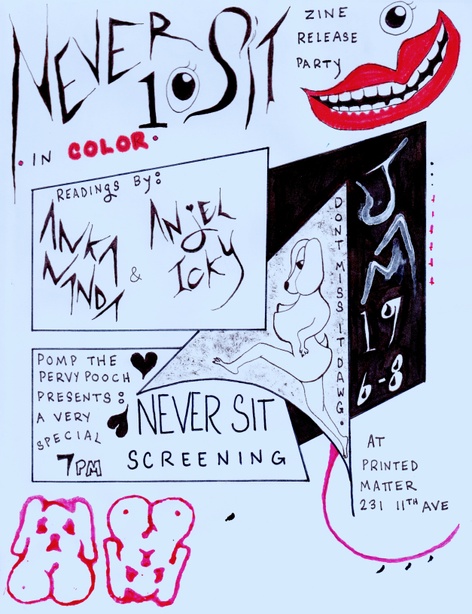 NEVER SIT
10
ZINE
RELEASE
PARTY
• IN COLOR •
READINGS BY:
ANKA
NANDA
&
ANJEL
ICKY
DONT MISS IT DAWG.
JAN
19
6-8
POMP THE
PERVY POOCH
PRESENTS:
A VERY
SPECIAL
7PM
NEVER SIT
SCREENING
AT
PRINTED
MATTER
231 11TH AVE